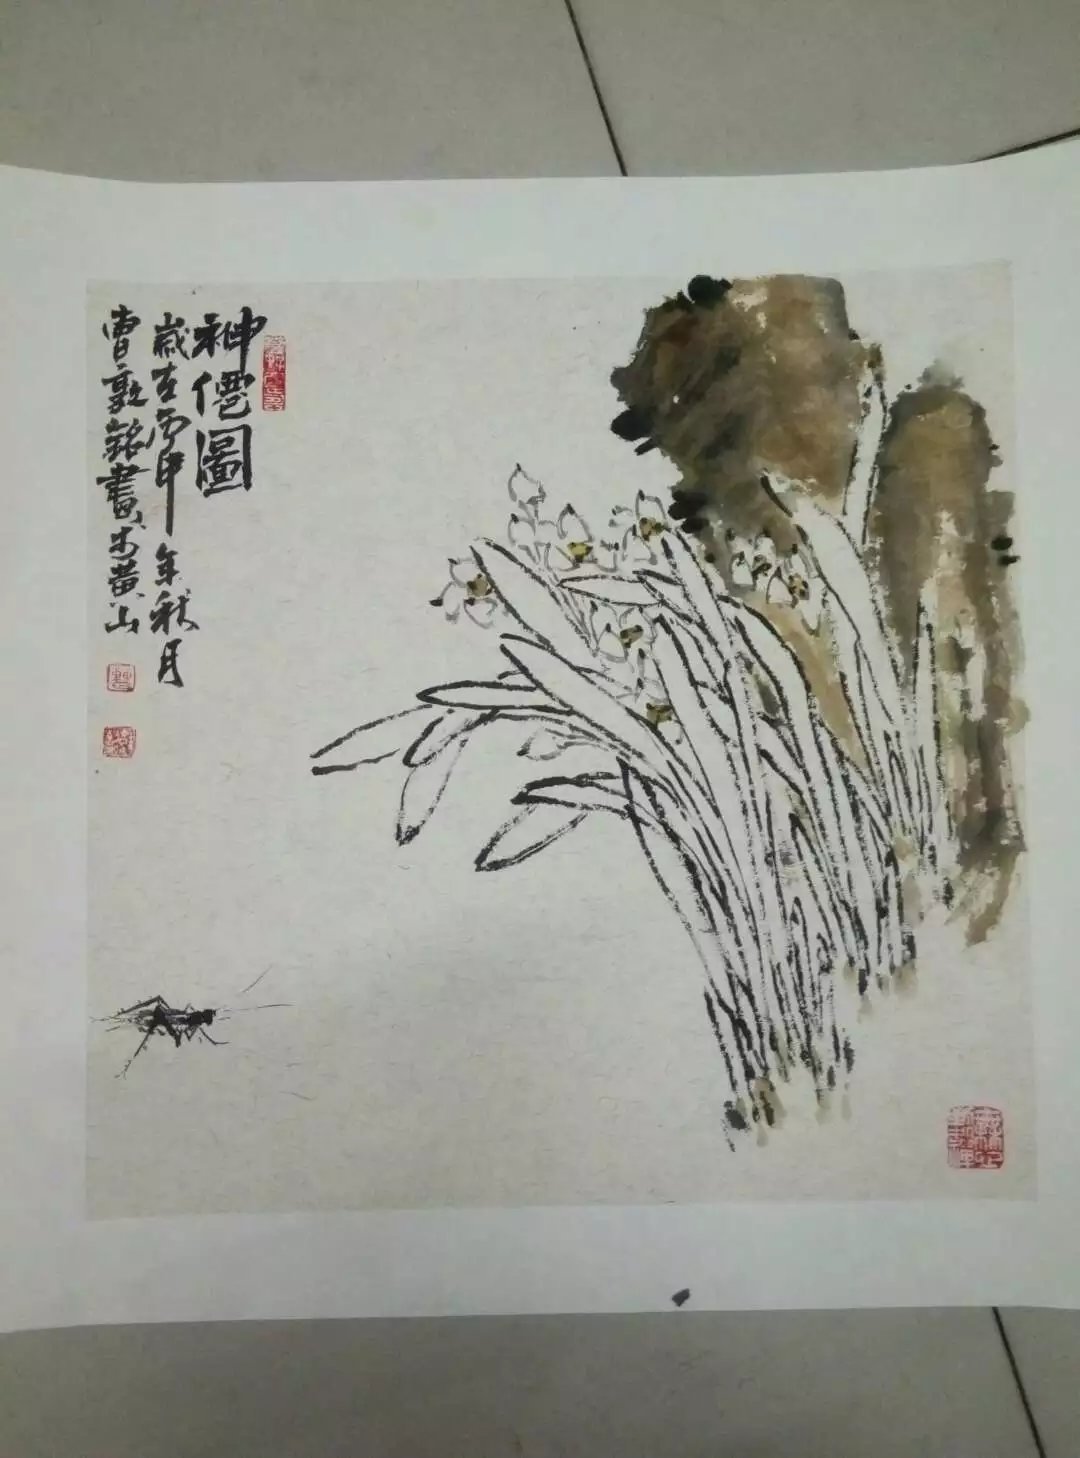 神僊圖
歲在丙申年秋月
曹敦銘畫於黄山